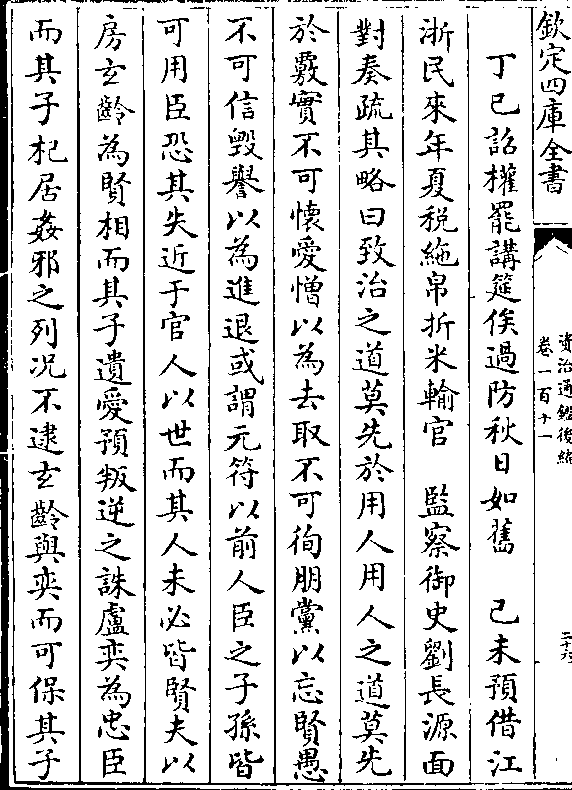 欽定四庫全書
資治通鑑後編
卷一百十一
二十六
丁巳詔權罷講筵俟過防秋日如舊　己未預借江
浙民來年夏税絁帛折米輸官　監察御史劉長源面
對奏疏其略曰致治之道莫先於用人用人之道莫先
於覈實不可懷愛憎以為去取不可徇朋黨以忘賢愚
不可信毁譽以為進退或謂元符以前人臣之子孫皆
可用臣恐其失近于官人以世而其人未必皆賢夫以
房玄齡為賢相而其子遺愛預叛逆之誅盧奕為忠臣
而其子杞居姦邪之列況不逮玄齡與奕而可保其子